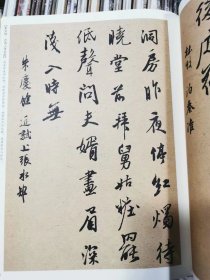 後庭花
杜牧 泊秦淮
洞房昨夜停紅燭待
曉堂前拜舅姑粧罷
低聲問夫婿畫眉深
淺入時無
朱慶餘 近試上張水部